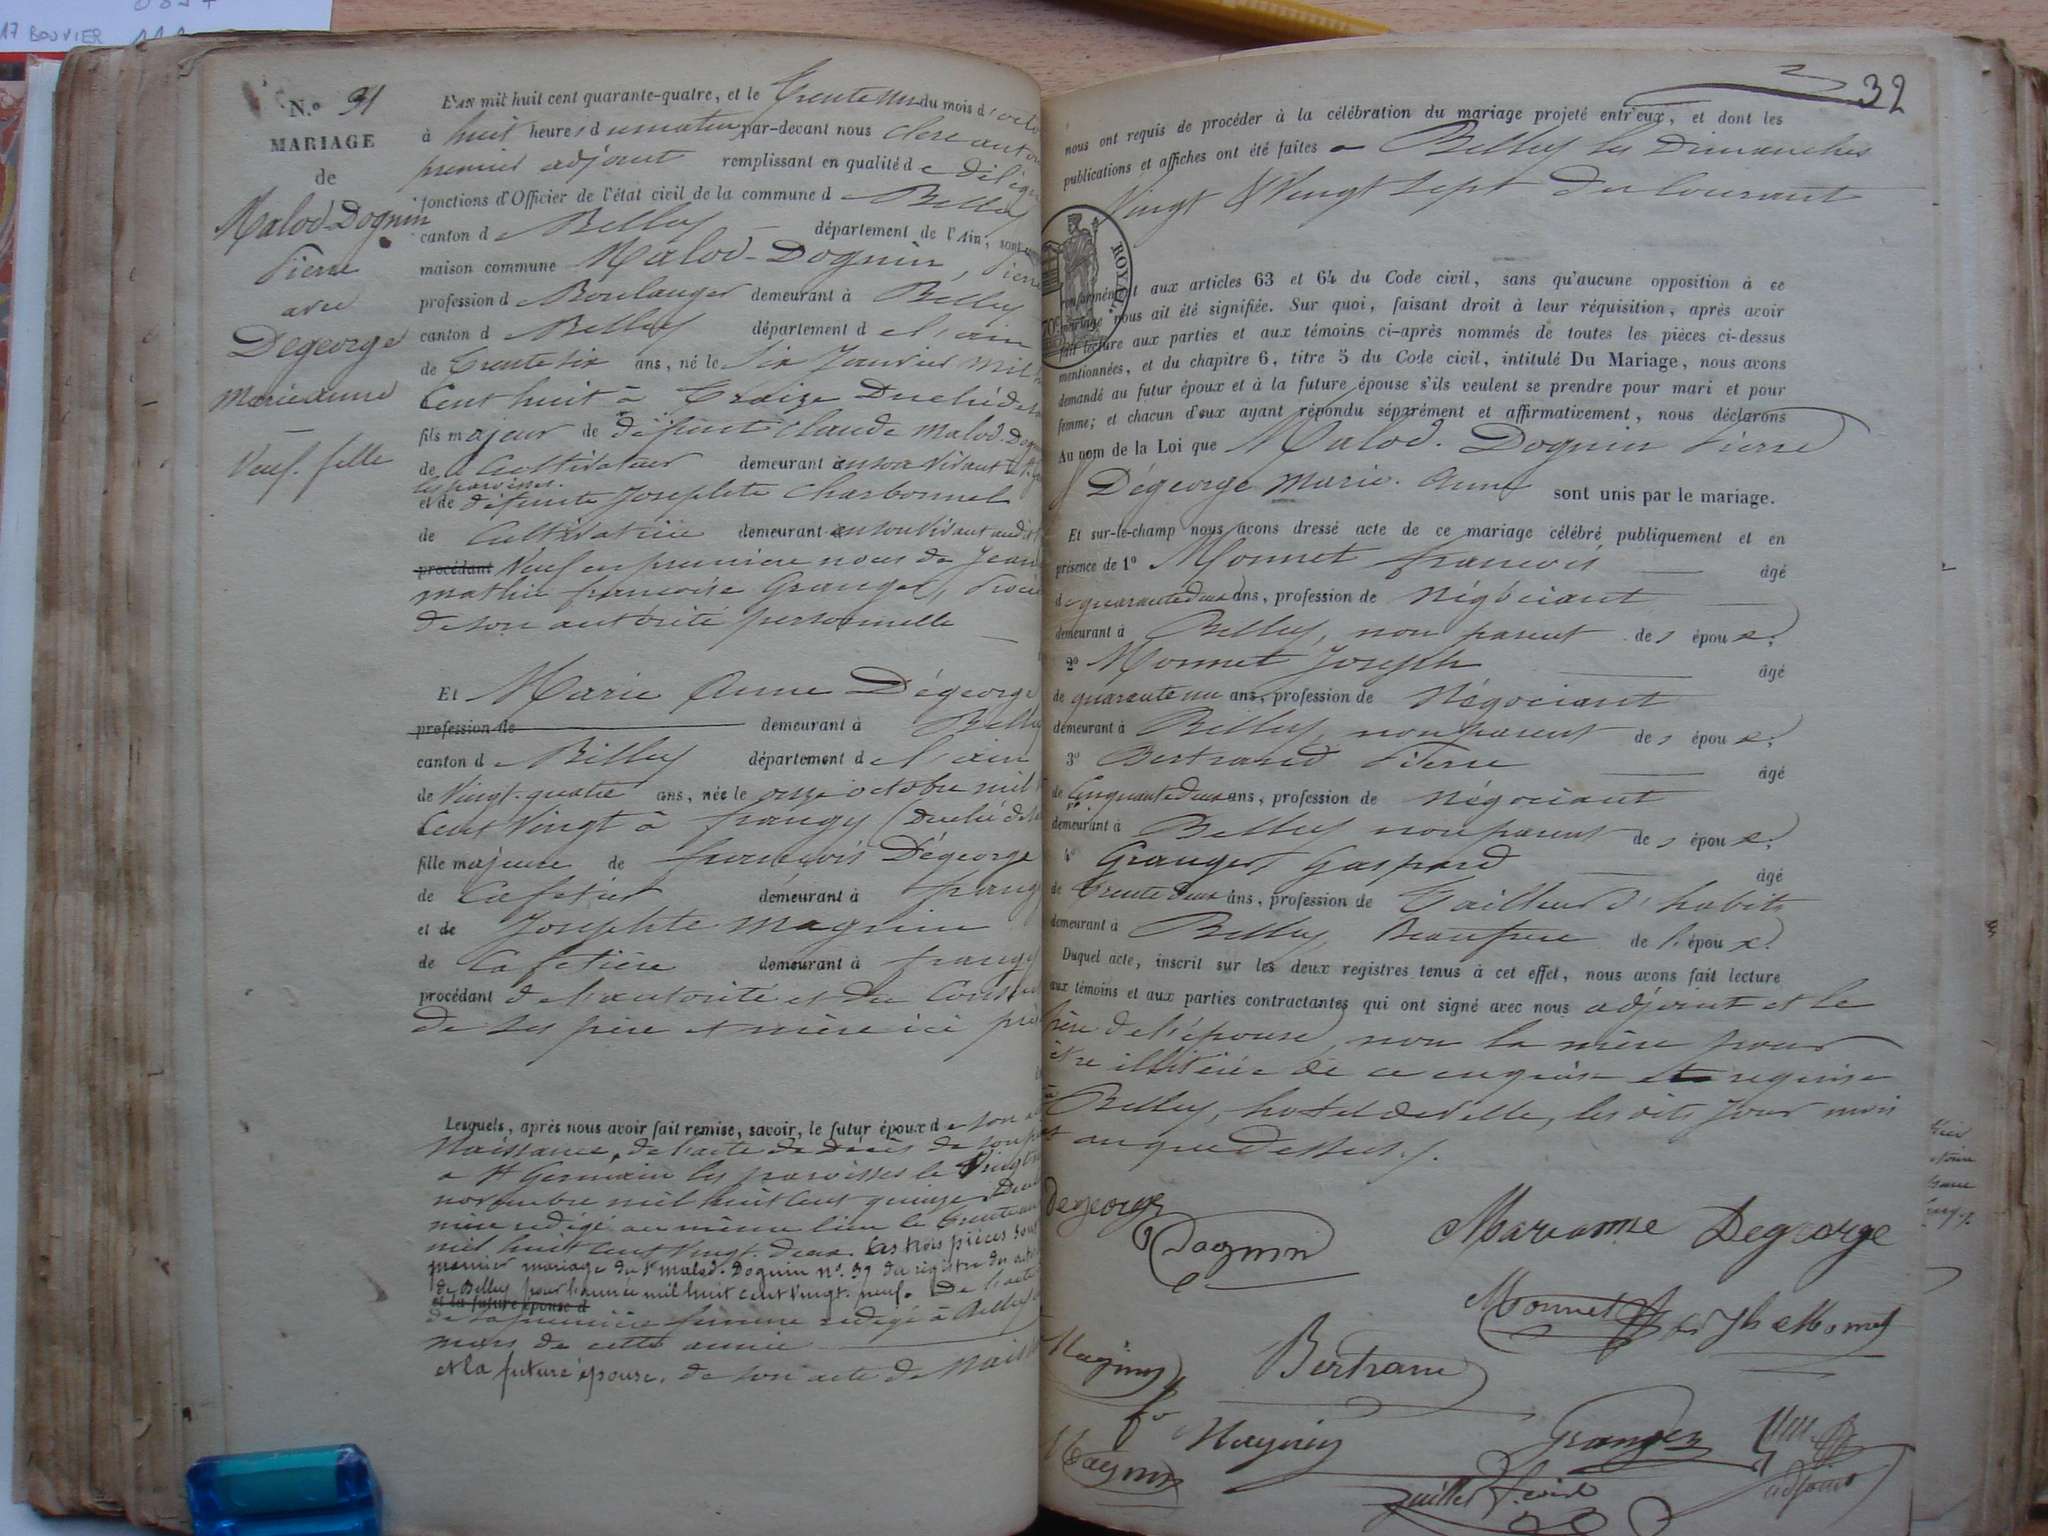 17 BOUVIER
N.º 31
MARIAGE
de
Malod-Dognin
Pierre
avec
Degeorge
Marie anne
Veuf. fille
L'an mil huit cent quarante-quatre, et le trente un du mois d'octo
à huit heures du matin par-devant nous
premier adjoint remplissant en qualité de délégué
fonctions d'Officier de l'état civil de la commune de Belley
canton de Belley département de l'Ain, sont
maison commune Malod-Dognin, Pierre
profession de Boulanger demeurant à Belley
canton de Belley département de l'ain
de trente six ans, né le six Janvier mil
Cent huit à Traize Duché de
fils majeur de défunt Claude Malod-Dog
de Cultivateur demeurant en son vivant à St
les paroisses.
et de défunte Josephte Charbonnel
de Cultivatrice demeurant en son vivant audit
procédant Veuf en première noces de Jean
françoise Granger,
de son autorité personnelle
Et Marie Anne Dégeorge
profession de demeurant à Belley
canton de Belley département de l'ain
de Vingt-quatre ans, née le onze octobre mil
Cent Vingt à frangy (Duché de
fille majeure de françois Dégeorge
de Cafetier demeurant à frangy
et de Josephte Magnin
de Cafetière demeurant à frangy
procédant de l'autorité et du Cons
de ses père et mère ici
Lesquels, après nous avoir fait remise, savoir, le futur époux de son
Naissance, de l'acte de décès de son
à St Germain les paroisses le Vingt
novembre mil huit cent quinze, de
mère rédigé au même lieu le trente
mil huit cent vingt-deux. Ces trois pièces sont
premier mariage du Sr Malod-Dognin nº 39 du registre des actes
de Belley pour l'année mil huit cent vingt-neuf. De l'acte
et la future épouse d
de sa première femme rédigé à Belley
mars de cette année
et la future épouse, de son acte de Nais
32
nous ont requis de procéder à la célébration du mariage projeté entr'eux, et dont les
publications et affiches ont été faites à Belley les Dimanches
Vingt & Vingt sept du Courant
ROYAL.
conformément aux articles 63 et 64 du Code civil, sans qu'aucune opposition à ce
mariage nous ait été signifiée. Sur quoi, faisant droit à leur réquisition, après avoir
fait lecture aux parties et aux témoins ci-après nommés de toutes les pièces ci-dessus
mentionnées, et du chapitre 6, titre 5 du Code civil, intitulé Du Mariage, nous avons
demandé au futur époux et à la future épouse s'ils veulent se prendre pour mari et pour
femme; et chacun d'eux ayant répondu séparément et affirmativement, nous déclarons
Au nom de la Loi que Malod-Dognin Pierre
Dégeorge Marie-Anne sont unis par le mariage.
Et sur-le-champ nous avons dressé acte de ce mariage célébré publiquement et en
présence de 1º Monnet françois âgé
de quarante deux ans, profession de Négociant
demeurant à Belley, non parent des époux;
2º Monnet Joseph âgé
de quarante un ans, profession de Négociant
demeurant à Belley, non parent des époux;
3º Bertrand Pierre âgé
de Cinquante deux ans, profession de Négociant
demeurant à Belley non parent des époux;
4º Granger Gaspard âgé
de trente deux ans, profession de Tailleur d'habits
demeurant à Belley, Beaufrere de l'époux.
Duquel acte, inscrit sur les deux registres tenus à cet effet, nous avons fait lecture
aux témoins et aux parties contractantes qui ont signé avec nous adjoint et le
père de l'épouse, non la mère pour
être illitérée de ce enquise et requise
à Belley, hotel de ville, les dits jour mois
et an que dessus./.
degeorge
Dognin
Marianne Degeorge
Monnet fs
Jh Monnet
Magnin
Bertrand
fs Magnin
Granger
Magnin
adjoint